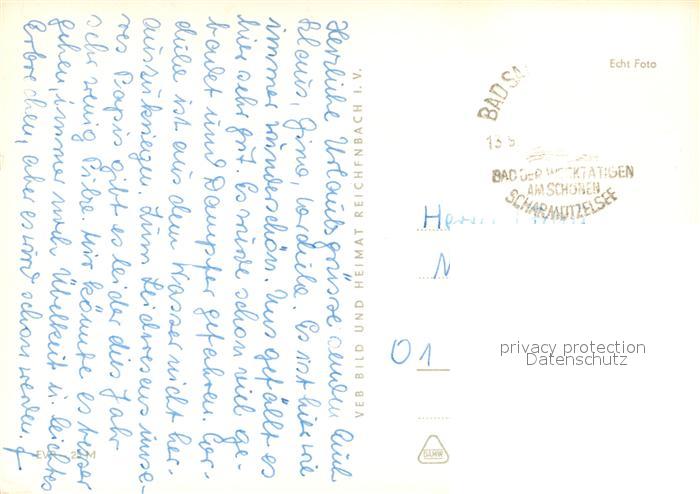 Herzliche Urlaubsgrüsse senden Euch
Klaus, Gina, Cordula. Es ist hier wie
immer wunderschön. Uns gefällt es
hier sehr gut. Es wurde schon viel ge-
badet und Dampfer gefahren. Cor-
dula ist aus dem Wasser nicht her-
auszukriegen. Zum Leidwesen unse-
res Papis gibt es leider dies Jahr
sehr wenig Pilze. Mir könnte es besser
gehen, immer noch Übelkeit u. leichtes
Erbrechen, aber es wird schon werden.
VEB BILD UND HEIMAT REICHENBACH I. V.
Echt Foto
BAD SA
BAD DER WERKTÄTIGEN
AM SCHÖNEN
SCHARMÜTZELSEE
Herrn
N
O1
privacy protection
Datenschutz